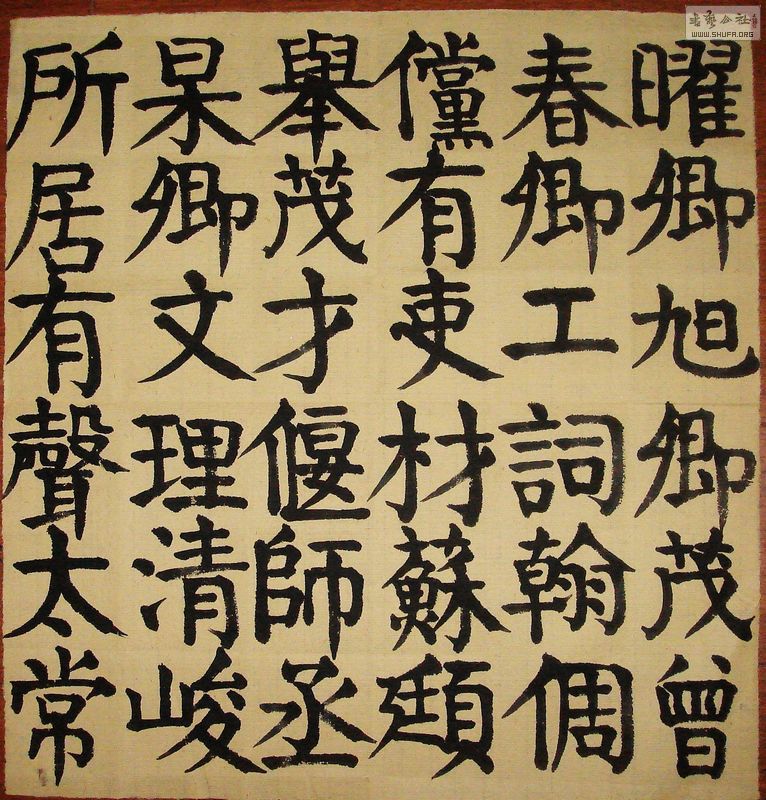 曜卿旭卿茂曾
春卿工詞翰倜
儻有吏材蘇頲
舉茂才偃師丞
杲卿文理清峻
所居有聲太常
WWW.SHUFA.ORG